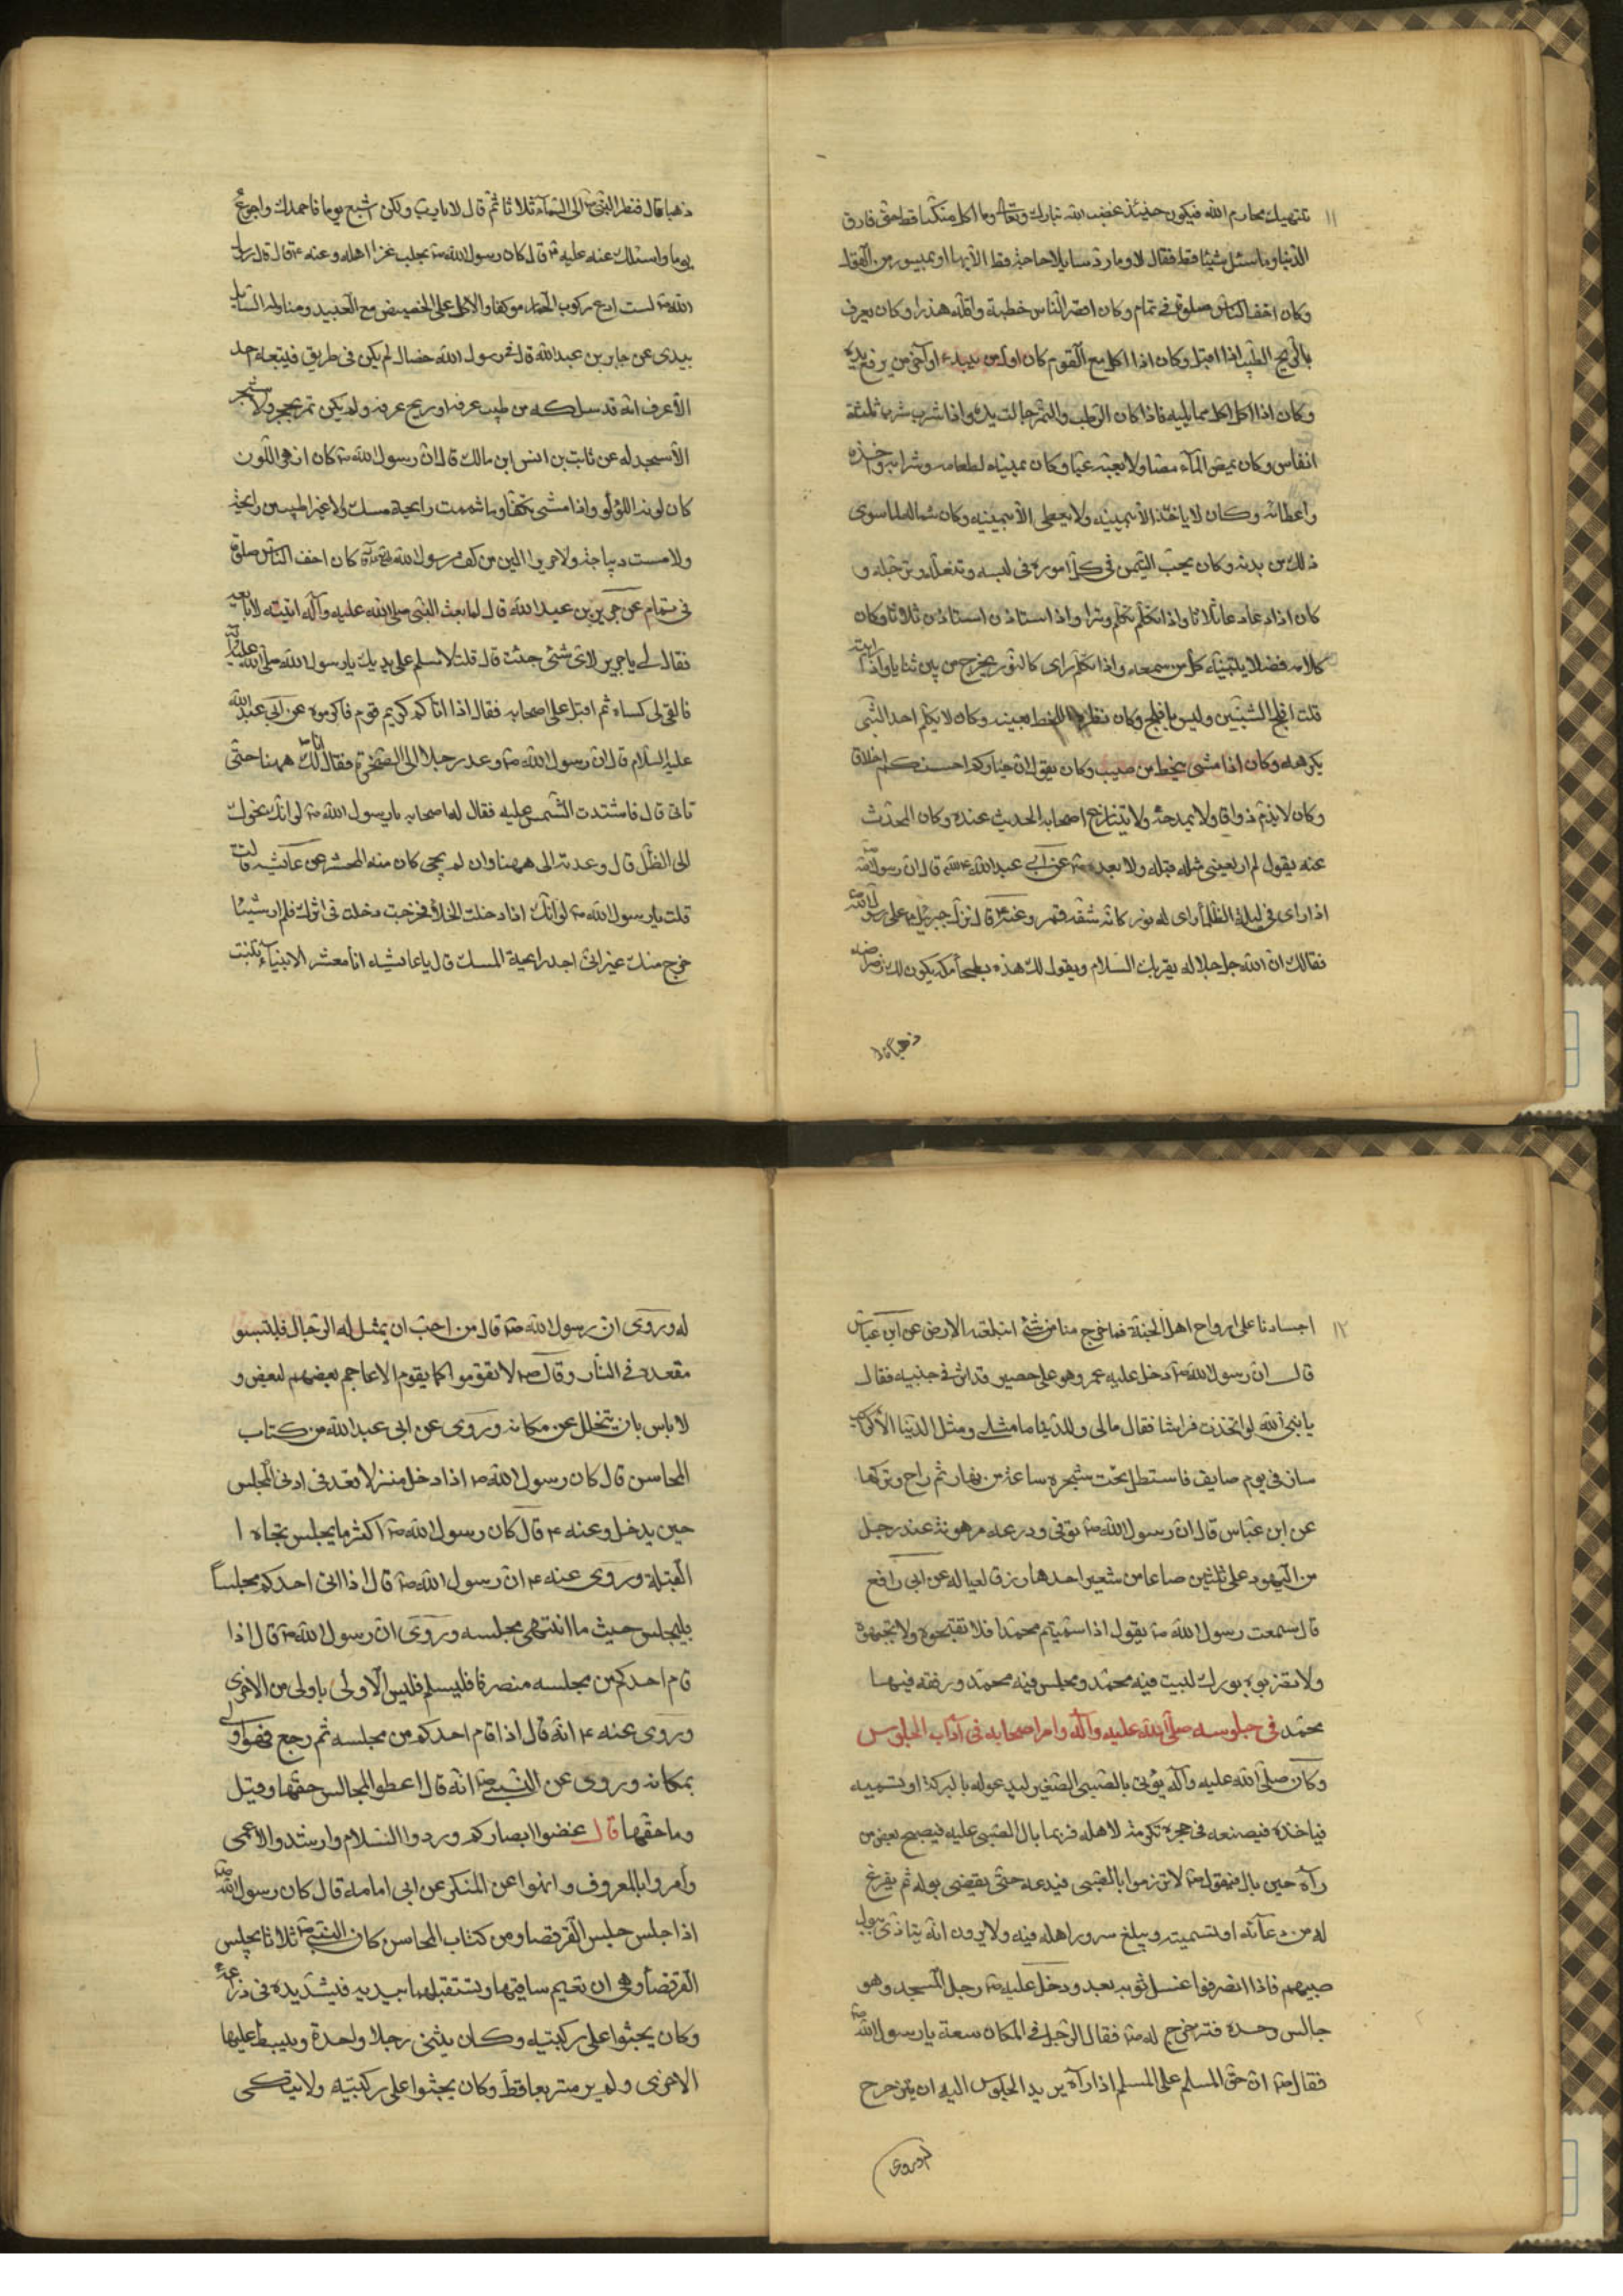 ١١ تنتهك محارم الله فيكون حينئذ غضب الله تبارك وتعالى وما اكل متكئا قط حتى فارق
الدنيا وما سئل شيئا قط فقال لا وما رد سايلا حاجة قط الا بها او بميسور من القول
وكان اخف الناس صلوة فى تمام وكان اقصر الناس خطبة واقله هذرا وكان يعرف
بالريح الطيب اذا اقبل وكان اذا اكل مع القوم كان اول من يبدء واخر من يرفع يده
وكان اذا اكل اكل مما يليه فاذا كان الرطب والتمر جالت يده واذا شرب شرب ثلثة
انفاس وكان يمص المآء مصا ولا يعبه عبا وكان يمينه لطعامه وشرابه واخذه
واعطائه وكان لا ياخذ الا بيمينه ولا يعطى الا بيمينه وكان شماله لما سوى
ذلك من بدنه وكان يحب التيمن فى كل اموره فى لبسه وتنعله وترجله و
كان اذا دعا دعا ثلاثا واذا تكلم تكلم وترا واذا استاذن استاذن ثلاثا وكان
كلامه فصلا يتبينه كل من سمعه واذا تكلم راى كالنور يخرج من بين ثناياه واذا رايته
قلت افلج الثنيتين وليس بافلج وكان نظره اللحظ بعينه وكان لا يكلم احد الشى
يكرهه وكان اذا مشى ينحط من صبب وكان يقول ان خياركم احسنكم اخلاقا
وكان لا يذم ذواقا ولا يمدحه ولا يتنازع اصحابه الحديث عنده وكان المحدث
عنه يقول لم ار بعينى مثله قبله ولا بعده ص عن ابى عبد الله ع قال ان رسول الله ص
اذا راى فى ليلة الظلمآء راى له نور كانه شقه قمر وعنه ع قال نزل جبرئيل ع على رسول الله ص
فقال ان الله جل جلاله يقرئك السلام ويقول لك هذه بطحآء مكة يكون لك رضراضه
ذهبا قال
ذهبا قال فنظر النبى ص الى السمآء ثلاثا ثم قال لا يا رب ولكن اشبع يوما فاحمدك واجوع
يوما واسئلك عنه عليه ع قال كان رسول الله ص يحلب عنز اهله وعنه ع قال قال رسول
الله ص لست ادع ركوب الحمار موكفا والاكل على الحصير مع العبيد ومناولة السايل
بيدى عن جابر بن عبد الله قال فى رسول الله خصال لم يكن فى طريق فيتبعه احد
الا عرف انه قد سلكه من طيب عرفه او ريح عرقه ولم يكن تمر بحجر ولا شجر
الا سجد له عن ثابت بن انس ابن مالك قال ان رسول الله ص كان ازهر اللون
كان لونه اللؤلؤ واذا مشى تكفأ وما شممت رايحة مسك ولا عنبر اطيب من رايحته
ولا مست ديباجة ولا حريرا الين من كف رسول الله ص كان اخف الناس صلوة
فى تمام عن جرير بن عبد الله قال لما بعث النبى صلى الله عليه وآله اتيته لابايعه
فقال لى يا جرير لاى شئ جئت قال قلت لاسلم على يديك يا رسول الله صلى الله عليك
فالقى لى كساءه ثم اقبل على اصحابه فقال اذا اتاكم كريم قوم فاكرموه عن ابى عبد الله
عليه السلام قال ان رسول الله ص وعد رجلا الى الصخرة فقال انا لك ههنا حتى
تاتى قال فاشتدت الشمس عليه فقال له اصحابه يا رسول الله ص لو انك تحولت
الى الظل قال وعدته الى ههنا وان لم يجى كان منه المحشر عن عآئشه قالت
قلت يا رسول الله ص لو انك اذا دخلت الخلأ فخرجت دخلت فى اثرك فلم ار شيئا
خرج منك غير انى اجد رايحة المسك قال يا عايشه انا معشر الانبيآء تنبت
١٢ اجسادنا على ارواح اهل الجنة فما خرج منا من شئ ابتلعته الارض عن ابن عباس
قال ان رسول الله ص دخل عليه عمر وهو على حصير قد اثر فى جنبيه فقال
يا نبى الله لو اتخذت فراشا فقال مالى وللدنيا ما مثلى ومثل الدنيا الا كراكب
سار فى يوم صايف فاستظل تحت شجره ساعة من نهار ثم راح وتركها
عن ابن عباس قال ان رسول الله ص توفى ودرعه مرهونة عند رجل
من اليهود على ثلثين صاعا من شعير اخذها رزقا لعياله عن ابى رافع
قال سمعت رسول الله ص يقول اذا سميتم محمدا فلا تقبحوه ولا تجبهوه
ولا تضربوه بورك لبيت فيه محمد ومجلس فيه محمد ورفقه فيها
محمد فى جلوسه صلى الله عليه وآله وامر اصحابه فى آداب الجلوس
وكان صلى الله عليه وآله يؤتى بالصبى الصغير ليدعو له بالبركة او تسميه
فياخذه فيضعه فى حجره تكرمة لاهله فربما بال الصبى عليه فيصيح بعض من
رآه حين بال فيقول ص لا تزرموا بالصبى فيدعه حتى يقضى بوله ثم يفرغ
له من دعآئه او تسميته ويبلغ سرور اهله فيه ولا يرون انه يتاذى ببول
صبيهم فاذا انصرفوا غسل ثوبه بعد ودخل عليه ص رجل المسجد وهو
جالس وحده فتزحزح له ص فقال الرجل فى المكان سعة يا رسول الله ص
فقال ص ان حق المسلم على المسلم اذا رآه يريد الجلوس اليه ان يتزحزح
له وروى
له وروى ان رسول الله ص قال من احب ان يمثل له الرجال فليتبوء
مقعده فى النار وقال ص لا تقوموا كما يقوم الاعاجم بعضهم لبعض و
لا باس بان يتخلل عن مكانه وروى عن ابى عبد الله من كتاب
المحاسن قال كان رسول الله ص اذا دخل منزلا قعد فى ادنى المجلس
حين يدخل وعنه ع قال كان رسول الله ص اكثر ما يجلس تجاه ا
القبلة وروى عنه ع ان رسول الله ص قال اذا اتى احدكم مجلسا
فليجلس حيث ما انتهى مجلسه وروى ان رسول الله ص قال اذا
قام احدكم من مجلسه منصرفا فليسلم فليس الاولى باولى من الاخرى
وروى عنه ع انه قال اذا قام احدكم من مجلسه ثم رجع فهو اولى
بمكانه وروى عن النبى ص انه قال اعطوا المجالس حقها وقيل
وما حقها قال غضوا ابصاركم وردوا السلام وارشدوا الاعمى
وأمروا بالمعروف وانهوا عن المنكر عن ابى امامه قال كان رسول الله ص
اذا جلس جلس القرفصا ومن كتاب المحاسن كان النبى ص ثلاثا يجلس
القرفصأ وهى ان تقيم ساقيها ويستقبلهما بيديه فيشد يده فى ذراعه
وكان يجثوا على ركبتيه وكان يثنى رجلا واحدة ويبسط عليها
الاخرى ولم ير متربعا قط وكان يجثوا على ركبتيه ولا يتكى